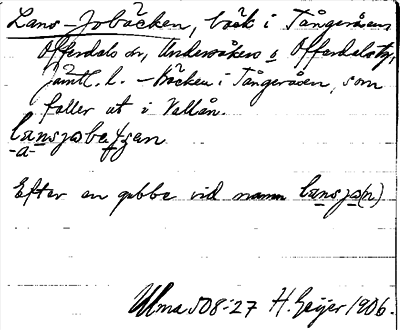 Lans-Jobäcken, bäck i Tångeråsen
Offerdals sn, Undersåkers o Offerdals tg,
Jämtl. l. – Bäcken i Tångeråsen, som
faller ut i Vallån.
-a-
Efter en gubbe vid namn lansjo(n)
Ulma 508:27 H. Geijer 1906.